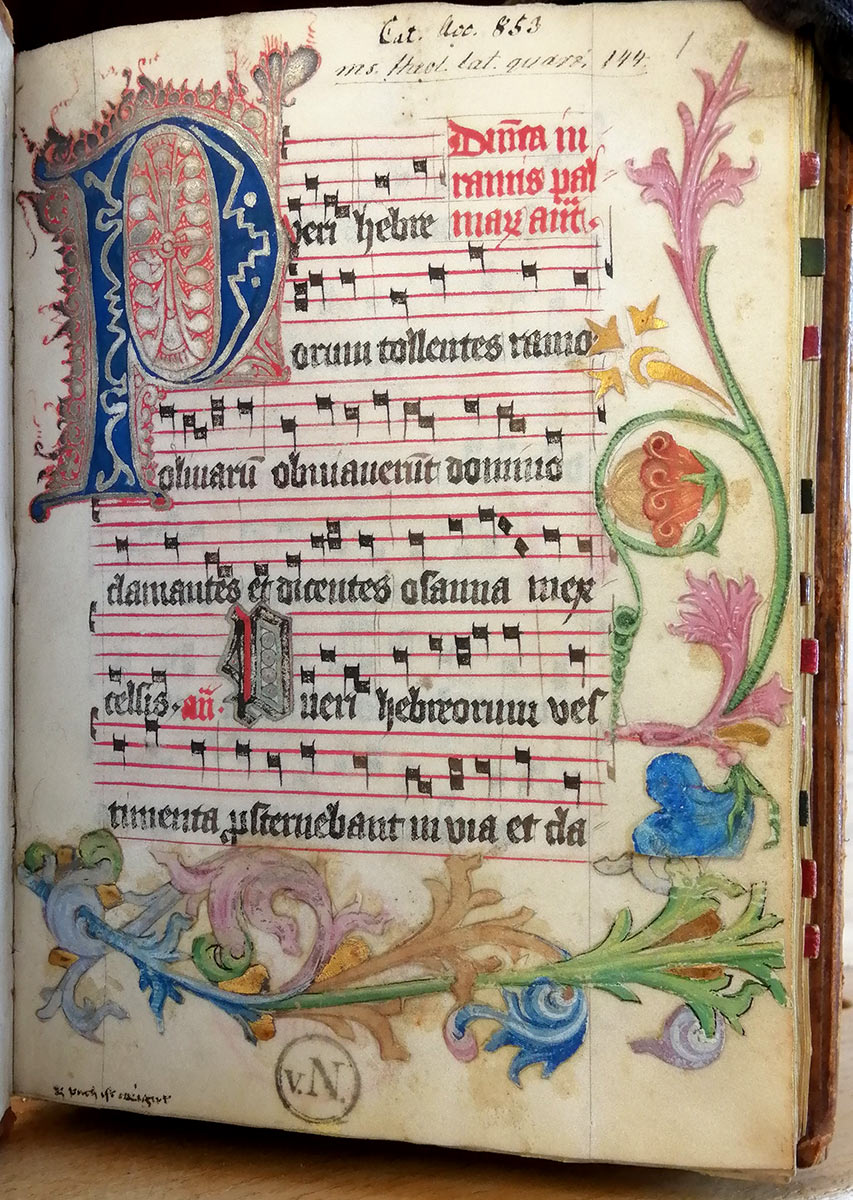 Cat. Acc. 853
ms. theol. lat. quart. 144. 1
Dīn̄ca in
ramis pal
maꝝ an̄t.
Pveri hebre
orum tollentes ramo
olivarū obviaverūt domino
clamantes et dicentes osanna inex
celsis. an̄. Pueri hebreorum ves
timenta ꝓsternebant in via et cla
v.N.